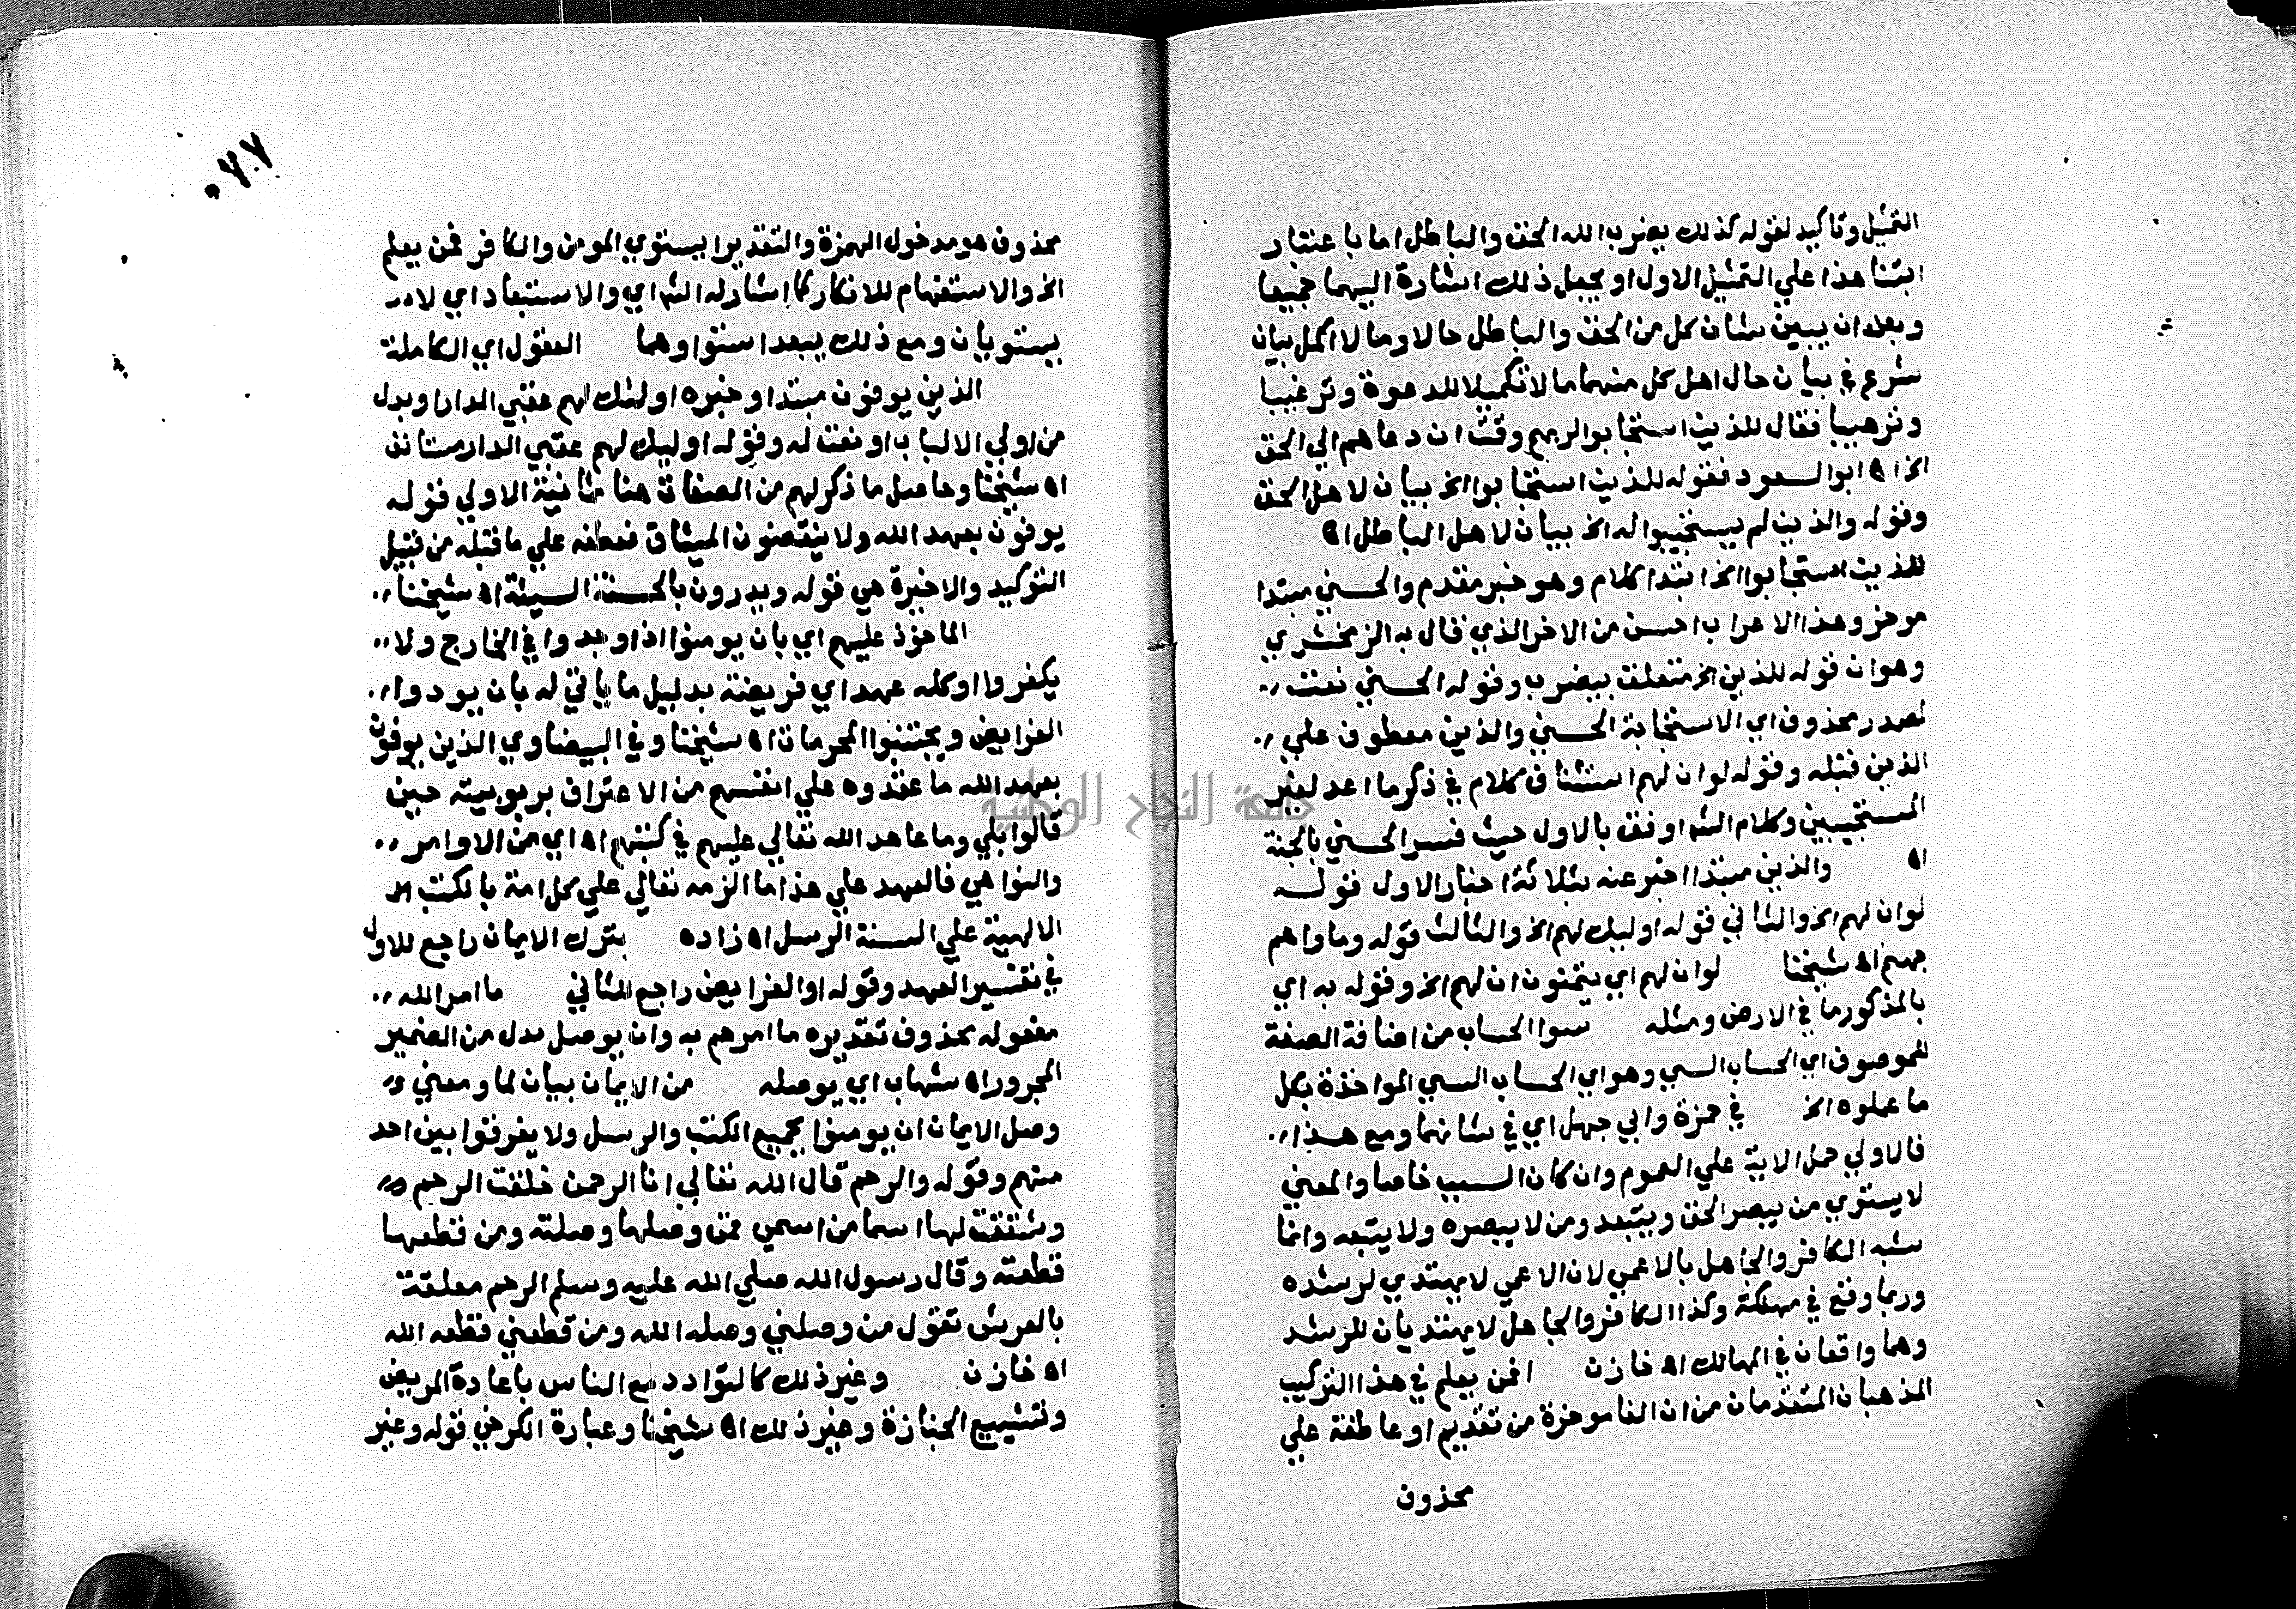 التمثيل وتاكيد لقوله كذلك يضرب الله الحق والباطل اما باعتبار
ابتنا هذا علي التمثيل الاول او بجعل ذلك اشارة اليهما جميعا
وبعد ان يبين شان كل من الحق والباطل حالا ومالا اكمل بيان
شرع في بيان حال اهل كل منهما مالا تكميلا للدعوة وترغيبا
وترهيبا فقال للذين استجابوا لربهم وقت ان دعاهم الي الحق
الخ اه ابو السعود فقوله للذين استجابوا الخ بيان لاهل الحق
وقوله والذين لم يستجيبوا له الخ بيان لاهل الباطل اه
للذين استجابوا الخ ابتدا كلام وهو خبر مقدم والحسني مبتدا
موخر وهذا الاعراب احسن من الاخر الذي قال به الزمخشري
وهو ان قوله للذين الخ متعلق بيضرب وقوله الحسني نعت
لمصدر محذوف اي الاستجابة الحسني والذين معطوف علي
الذين قبله وقوله لو ان لهم استئناف كلام في ذكر ما اعد لغير
المستجيبين وكلام الش اوفق بالاول حيث فسر الحسني بالجنة
اه والذين مبتدا اخبر عنه بثلاثة اخبار الاول قوله
لو ان لهم الخ والثاني قوله اوليك لهم الخ والثالث قوله وماواهم
جهنم اه شيخنا لو ان لهم اي يتمنون ان لهم الخ وقوله به اي
بالمذكور ما في الارض ومثله سوا الحساب من اضافة الصفة
للموصوف اي الحساب السي وهو اي الحساب السي المواخذة بكل
ما عملوه الخ في حمزة وابي جهل اي في شانهما ومع هذا
فالاولي حمل الاية علي العموم وان كان السبب خاصا والمعني
لا يستوي من يبصر الحق ويتبعه ومن لا يبصره ولا يتبعه وانما
شبه الكافر والجاهل بالاعمي لان الاعمي لا يهتدي لرشده
وربما وقع في مهلكة وكذا الكافر والجاهل لا يهتديان للرشد
وهما واقعان في المهالك اه خازن افمن يعلم في هذا التركيب
المذهبان المتقدمان من ان الفا موخرة من تقديم او عاطفة علي
محذوف
٠٧٠٧
محذوف هو مدخول الهمزة والتقدير ايستوي المومن والكافر فمن يعلم
الخ والاستفهام للانكار كما اشار له الش اي والاستبعاد اي لا
يستويان ومع ذلك يبعد استواوهما العقول اي الكاملة
الذين يوفون مبتدا وخبره اولئك لهم عقبي الدار او بدل
من اولي الالباب او نعت له وقوله اوليك لهم عقبي الدار مستانف
اه شيخنا وحاصل ما ذكر لهم من الصفات هنا ثمانية الاولي قوله
يوفون بعهد الله ولا ينقضون الميثاق فعطفه علي ما قبله من قبيل
التوكيد والاخيرة هي قوله ويدرون بالحسنة السيئة اه شيخنا
الماخوذ عليهم اي بان يومنوا اذا وجدوا في الخارج ولا
يكفروا او كله عهد اي فريضة بدليل ما ياتي له بان يودوا
الفرايض ويجتنبوا المحرمات اه شيخنا وفي البيضاوي الذين يوفون
بعهد الله ما عقدوه علي انفسهم من الاعتراف بربوبيته حين
قالوا بلي وما عاهد الله تعالي عليهم في كتبهم اه اي من الاوامر
والنواهي فالعهد علي هذا ما الزمه تعالي علي كل امة بالكتب
الالهية علي السنة الرسل اه زاده بترك الايمان راجع للاول
في تفسير العهد وقوله او الفرايض راجع للثاني ما امر الله
مفعوله محذوف تقديره ما امرهم به وان يوصل بدل من الضمير
المجرور اه شهاب اي يوصله من الايمان بيان لما ومعني
وصل الايمان ان يومنوا بجميع الكتب والرسل ولا يفرقوا بين احد
منهم وقوله والرحم قال الله تعالي انا الرحمن خلقت الرحم
وشققت لها اسما من اسمي فمن وصلها وصلته ومن قطعها
قطعته وقال رسول الله صلي الله عليه وسلم الرحم معلقة
بالعرش تقول من وصلني وصله الله ومن قطعني قطعه الله
اه خازن وغير ذلك كالتوادد مع الناس باعادة المريض
وتشييع الجنازة وغير ذلك اه شيخنا وعبارة الكرخي قوله وغير
جامعة النجاح الوطنية